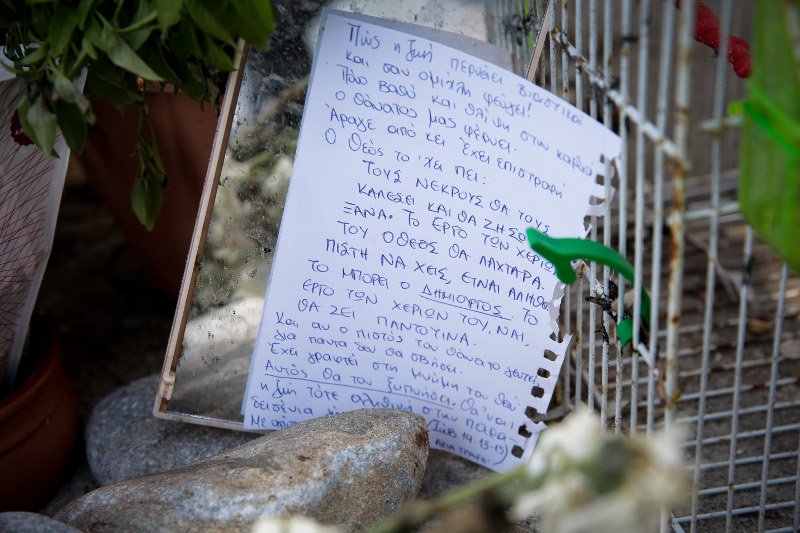 Πώς η ζωή περνάει βιαστικά
και σαν ομίχλη φεύγει!
Πόσο βαθύ και θλίψη στην καρδιά
ο θάνατος μας φέρνει.
Άραγε από κει έχει επιστροφή
Ο Θεός το 'χει πει:
ΤΟΥΣ ΝΕΚΡΟΥΣ ΘΑ ΤΟΥΣ
ΚΑΛΕΣΕΙ ΚΑΙ ΘΑ ΖΗΣΟ
ΞΑΝΑ. ΤΟ ΕΡΓΟ ΤΩΝ ΧΕΡΙΩΝ
ΤΟΥ Ο ΘΕΟΣ ΘΑ ΛΑΧΤΑΡΑ.
ΠΙΣΤΗ ΝΑ ΧΕΙΣ, ΕΙΝΑΙ ΑΛΗΘΙ
ΤΟ ΜΠΟΡΕΙ Ο ΔΗΜΙΟΥΡΓΟΣ ΤΟ
ΕΡΓΟ ΤΩΝ ΧΕΡΙΩΝ ΤΟΥ, ΝΑΙ,
ΘΑ ΖΕΙ ΠΑΝΤΟΤΙΝΑ.
Και αν ο πιστός του θάνατο γευτεί
για πάντα δεν θα σβήσει.
Έχει γραφτεί στη μνήμη του Θεού
Αυτός θα τον ξυπνήσει. Θα 'ναι
η ζωή τότε αληθινή στην παρά-
δεισένια (Ιώβ 14:13-15)
Με αγάπη